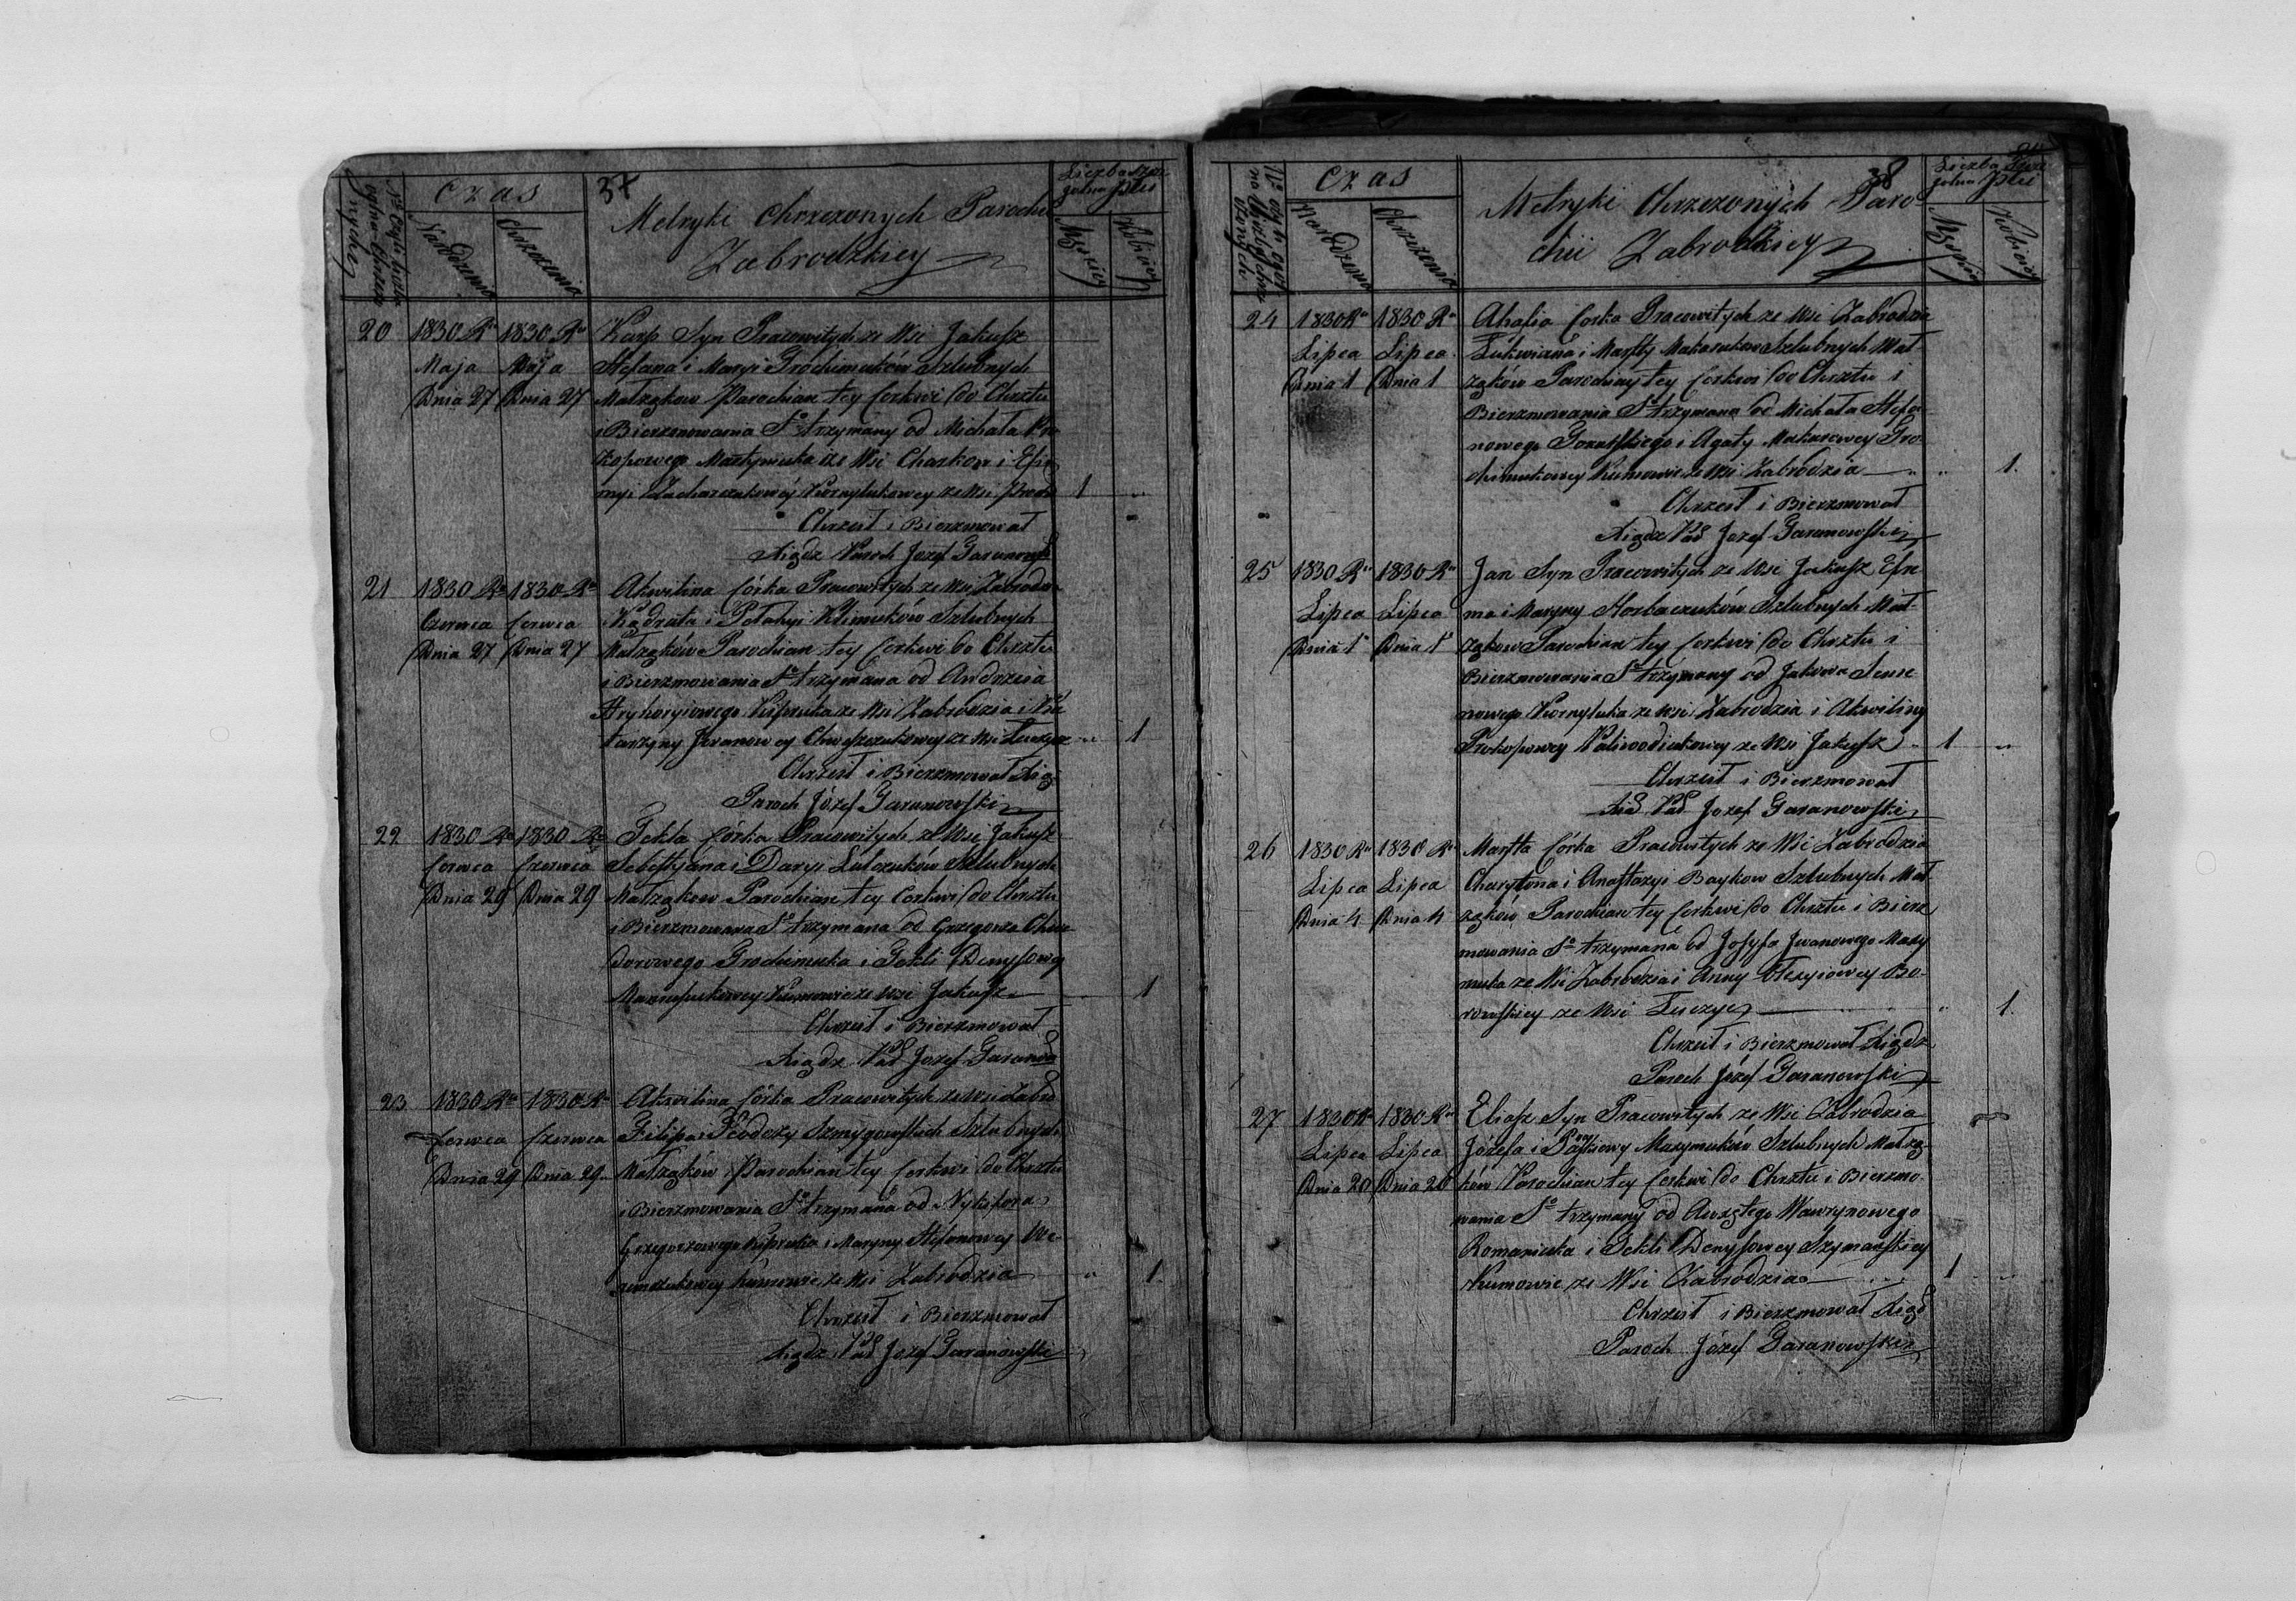 37
Czas
Narodzenia
Chrzczenia
Metryki Chrzczonych Parochii
Zabrodzkiey
Liczba szcze
gulna płci
Męzkiey
Kobiecey
20
1830 Ru
Maja
Dnia 27
1830 Ru
Maja
Dnia 27
Karp Syn Pracowitych ze Wsi Jakusz
Stefana i Maryi Trochimuków Szlubnych
Małżąkow Parochian tey Cerkwi do Chrztu
i Bierzmowania So trzymany od Michała Pro
kopowego Martyniuka ze Wsi i
Zacharczukowey Kornylukowey ze Wsi
1
Chrzcił i Bierzmował
Xiądz Paroch Jozef Garanowski
21
1830 Ru
Czerwca
Dnia 27
1830 Ru
Czerwca
Dnia 27
Akwilina Córka Pracowitych ze Wsi Zabrodzia
Kądrata i Pełahyi Klimuków Szlubnych
Małżąków Parochian tey Cerkwi do Chrztu
i Bierzmowania So trzymana od Andrzeia
Hryhoryiowego ze Wsi Zabrodzia i Ka
tarzyny Jwanowey ze Wsi Łuczyc
1
Chrzcił i Bierzmował Xiąz
Paroch Józef Garanowski
22
1830 Ru
Czerwca
Dnia 29
1830 Ru
Czerwca
Dnia 29
Tekla Córka Pracowitych ze Wsi Jakusz
Sebestyana i Daryi Szlubnych
Małżąkow Parochian tey Cerkwi do Chrztu
i Bierzmowania So trzymana od Grzegorza Chwe
dorowego Trochimuka i Tekli Denysowey
Kumowie ze Wsi Jakusz
1
Chrzcił i Bierzmował
Xiądz Pad Jozef
23
1830 Ru
Czerwca
Dnia 29
1830 Ru
Czerwca
Dnia 29
Akwilina Córka Pracowitych ze Wsi Zabro
Filipa i Teodozy Szmygowskich Szlubnych
Małżąków Parochian tey Cerkwi do Chrztu
i Bierzmowania So trzymana od Nykifora
Grzegorzowego i Maryny Stefanowey
Kumowie ze Wsi Zabrodzia
1
Chrzcił i Bierzmował
Xiądz Pad Jozef Garanowski
38
Czas
Narodzenia
Chrzczenia
Metryki Chrzczonych Paro-
chii Zabrodzkiey
Liczba szcze
gulna płci
Męzkiey
Kobiecey
24
1830 Ru
Lipca
Dnia 1
1830 Ru
Lipca
Dnia 1
Ahafia Corka Pracowitych ze Wsi Zabrodzia
Łukwiana i Marfty Makarukow Szlubnych Mał-
żąków Parochian tey Cerkwi do Chrztu i
Bierzmowania So trzymana od Michała Stefa
nowego i Agaty Makarowey Tro
chimukowey Kumowie ze Wsi Zabrodzia
1.
Chrzcił i Bierzmował
Xiądz Pad Jozef Garanowski
25
1830 Ru
Lipca
Dnia 1
1830 Ru
Lipca
Dnia 1
Jan Syn Pracowitych ze Wsi Jakusz Efre
ma i Maryny Horbaczuków Szlubnych Mał-
żąkow Parochian tey Cerkwi do Chrztu i
Bierzmowania So trzymany od Jakowa Seme
nowego Kornyluka ze Wsi Zabrodzia i Akwiliny
Prokopowey Paliwodiukowey ze Wsi Jakusz
1
Chrzcił i Bierzmował
Xiąd Pad Jozef Garanowski
26
1830 Ru
Lipca
Dnia 4
1830 Ru
Lipca
Dnia 4
Marfta Córka Pracowitych ze Wsi Zabrodzia
Charytona i Anastazyi Baykow Szlubnych Mał-
żąków Parochian tey Cerkwi do Chrztu i Bierz
mowania So trzymana od Josyfa Jwanowego Maxy
muka ze Wsi Zabrodzia i Anny Ołexyiowey Bo-
rowskiey ze Wsi Łuczyc
1.
Chrzcił i Bierzmował Xiądz
Paroch Józef Garanowski
27
1830 Ru
Lipca
Dnia 20
1830 Ru
Lipca
Dnia 20
Eliasz Syn Pracowitych ze Wsi Zabrodzia
Józefa i Maxymuków Szlubnych Małżą
ków Parochian tey Cerkwi do Chrztu i Bierzmo-
wania So trzymany od Wawrynowego
Romaniuka i Tekli Denysowey Szymańskiey
Kumowie ze Wsi Zabrodzia
1
Chrzcił i Bierzmował Xiąd
Paroch Józef Garanowski